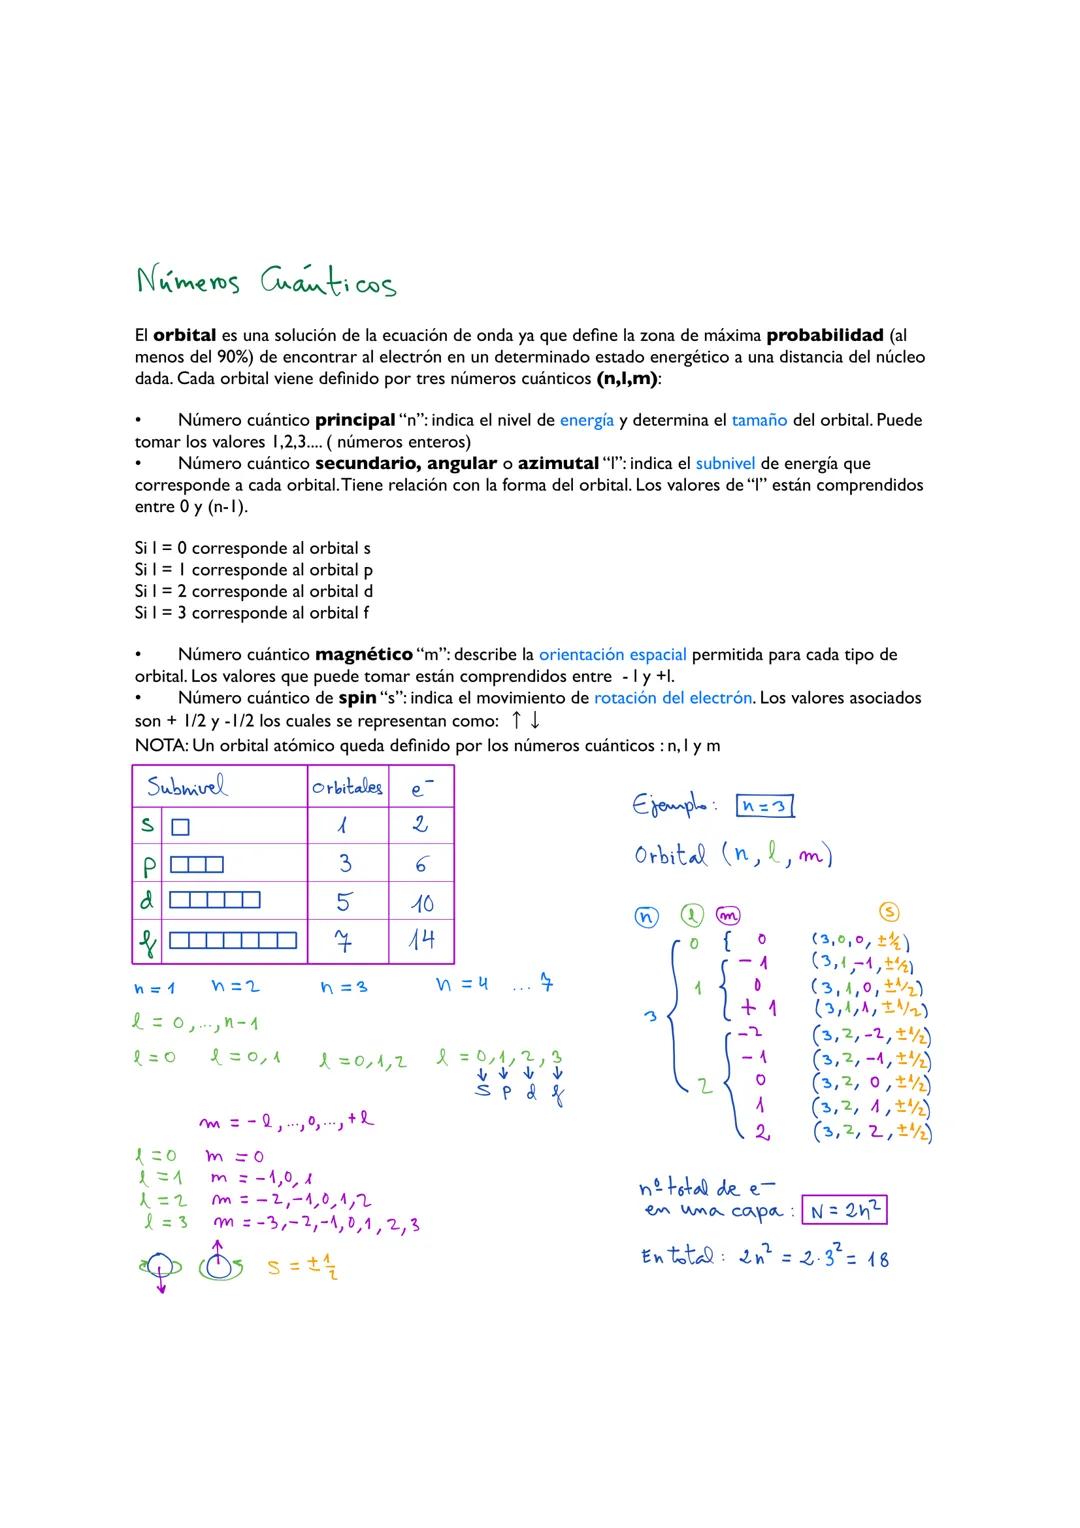 Números Cuánticos
El orbital es una solución de la ecuación de onda ya que define la zona de máxima probabilidad (al
menos del 90%) de encontrar al electrón en un determinado estado energético a una distancia del núcleo
dada. Cada orbital viene definido por tres números cuánticos (n,l,m):
• Número cuántico principal “n”: indica el nivel de energía y determina el tamaño del orbital. Puede
tomar los valores 1,2,3.... ( números enteros)
• Número cuántico secundario, angular o azimutal “l”: indica el subnivel de energía que
corresponde a cada orbital. Tiene relación con la forma del orbital. Los valores de “l” están comprendidos
entre 0 y (n-1).
Si l = 0 corresponde al orbital s
Si l = 1 corresponde al orbital p
Si l = 2 corresponde al orbital d
Si l = 3 corresponde al orbital f
• Número cuántico magnético “m”: describe la orientación espacial permitida para cada tipo de
orbital. Los valores que puede tomar están comprendidos entre - l y +l.
• Número cuántico de spin “s”: indica el movimiento de rotación del electrón. Los valores asociados
son + 1/2 y -1/2 los cuales se representan como: ↑ ↓
NOTA: Un orbital atómico queda definido por los números cuánticos : n, l y m
Subnivel orbitales e⁻
s 1 2
p 3 6
d 5 10
f 7 14
n = 1 n = 2 n = 3 n = 4 ... 7
l = 0,...,n-1
l = 0 l = 0,1 l = 0,1,2 l = 0,1,2,3
↓ ↓ ↓ ↓
s p d f
m = -l,...,0,...,+l
l = 0 m = 0
l = 1 m = -1,0,1
l = 2 m = -2,-1,0,1,2
l = 3 m = -3,-2,-1,0,1,2,3
s = ±1/2
Ejemplo: n = 3
Orbital (n, l, m)
n l m s
0 { 0 (3,0,0, ±1/2)
-1 (3,1,-1, ±1/2)
1 0 (3,1,0, ±1/2)
3 +1 (3,1,1, ±1/2)
-2 (3,2,-2, ±1/2)
-1 (3,2,-1, ±1/2)
2 0 (3,2, 0, ±1/2)
1 (3,2, 1, ±1/2)
2 (3,2, 2, ±1/2)
nº total de e⁻
en una capa : N = 2n²
En total : 2n² = 2·3² = 18